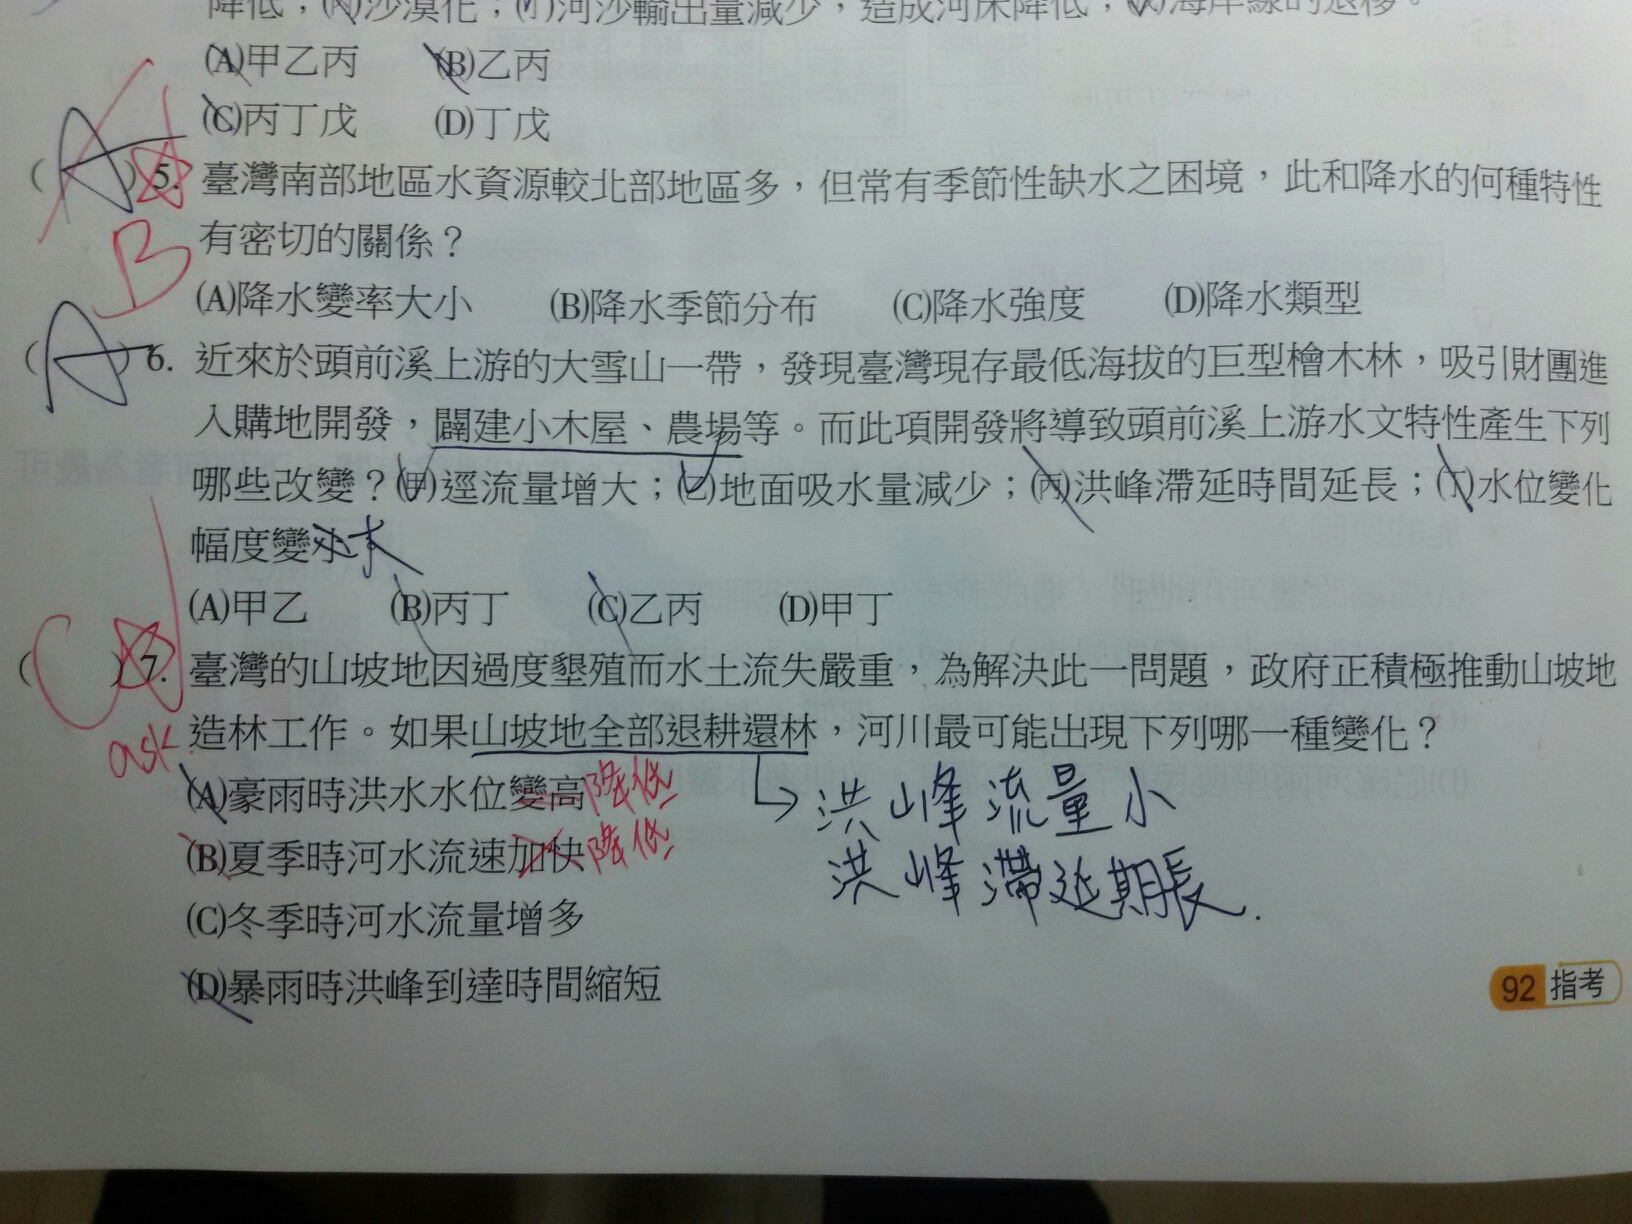 降低；(丙)沙漠化；(丁)河沙輸出量減少，造成河床降低；(戊)海岸線的退移。
(A)甲乙丙 (B)乙丙
(C)丙丁戊 (D)丁戊
(A)5. 臺灣南部地區水資源較北部地區多，但常有季節性缺水之困境，此和降水的何種特性
B 有密切的關係？
(A)降水變率大小 (B)降水季節分布 (C)降水強度 (D)降水類型
(A)6. 近來於頭前溪上游的大雪山一帶，發現臺灣現存最低海拔的巨型檜木林，吸引財團進
入購地開發，闢建小木屋、農場等。而此項開發將導致頭前溪上游水文特性產生下列
哪些改變？(甲)逕流量增大；(乙)地面吸水量減少；(丙)洪峰滯延時間延長；(丁)水位變化
幅度變小大
(A)甲乙 (B)丙丁 (C)乙丙 (D)甲丁
(C)7. 臺灣的山坡地因過度墾殖而水土流失嚴重，為解決此一問題，政府正積極推動山坡地
ask 造林工作。如果山坡地全部退耕還林，河川最可能出現下列哪一種變化？
(A)豪雨時洪水水位變高 降低 洪峰流量小
(B)夏季時河水流速加快 降低 洪峰滯延期長.
(C)冬季時河水流量增多
(D)暴雨時洪峰到達時間縮短
92 指考